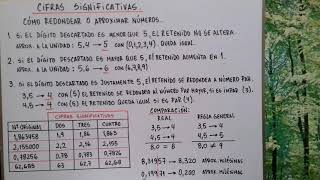 CIFRAS SIGNIFICATIVAS.
CÓMO REDONDEAR O APROXIMAR NÚMEROS.
1. SI EL DÍGITO DESCARTADO ES MENOR QUE 5, EL RETENIDO NO SE ALTERA.
APROX. A LA UNIDAD: 5,4 → 5 CON (0,1,2,3,4) QUEDA IGUAL.
2. SI EL DÍGITO DESCARTADO ES MAYOR QUE 5, EL RETENIDO AUMENTA EN 1.
APROX. A LA UNIDAD: 5,6 → 6 CON (6,7,8,9)
3. SI EL DÍGITO DESCARTADO ES JUSTAMENTE 5, EL RETENIDO SE REDONDEA A NÚMERO PAR.
3,5 → 4 CON (5) EL RETENIDO SE REDONDEA AL NÚMERO PAR MAYOR, SI ES IMPAR (3).
4,5 → 4 CON (5) EL RETENIDO QUEDA IGUAL SI ES PAR (4)
CIFRAS SIGNIFICATIVAS
Nº ORIGINAL DOS TRES CUATRO
1,863458 1,9 1,86 1,863
2,155000 2,2 2,16 2,155
0,78256 0,78 0,783
62,685 63 62,7 62,68
COMPARACIÓN:
REAL REGLA GENERAL
3,5 → 4 3,5 → 4
4,5 → 4 4,5 → 5
8,0 = 8 8,0 ≠ 9
8,320 APROX. MILÉSIMAS